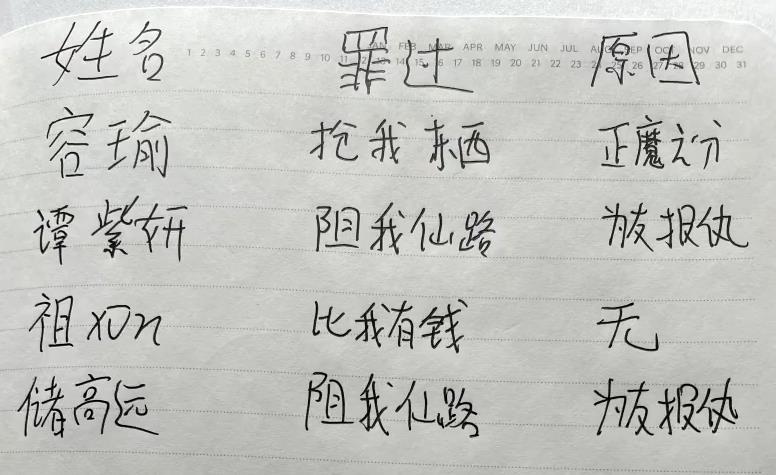 姓名 罪过 原因
1 2 3 4 5 6 7 8 9 10 11 12 13 14 15 16 17 18 19 20 21 22 23 24 25 26 27 28 29 30 31
JAN FEB MAR APR MAY JUN JUL AUG SEP OCT NOV DEC
容瑜 抢我东西 正魔之分
谭紫妍 阻我仙路 为友报仇
祖xDn 比我有钱 无
储高远 阻我仙路 为友报仇